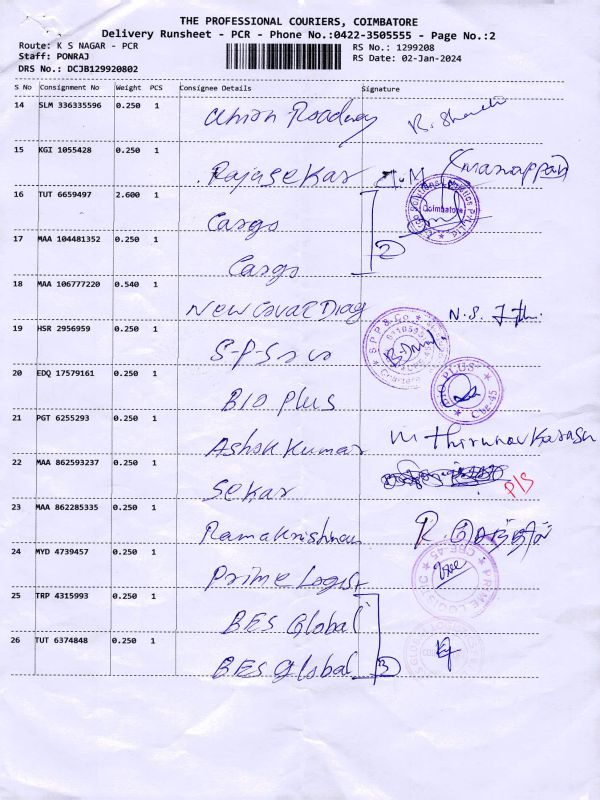 THE PROFESSIONAL COURIERS, COIMBATORE
Delivery Runsheet - PCR - Phone No.:0422-3505555 - Page No.:2
Route: K S NAGAR - PCR
RS No.: 1299208
Staff: PONRAJ
RS Date: 02-Jan-2024
DRS No.: DCJB129920802
S No Consignment No Weight PCS Consignee Details Signature
14 SLM 336335596 0.250 1 Union Roadway
15 KGI 1055428 0.250 1 Rajasekar
16 TUT 6659497 2.600 1 Cargo
Coimbatore
17 MAA 104481352 0.250 1 Cargo
2
18 MAA 106777220 0.540 1 New Coval Diag N.S.
19 HSR 2956959 0.250 1
S.P.P & Co
20 EDQ 17579161 0.250 1 BIO Plus
BIO PLUS Cbe-45
21 PGT 6255293 0.250 1 Ashok Kumar M Thirunavkarasu
22 MAA 862593237 0.250 1 Sekar P/S
23 MAA 862285335 0.250 1 Ramakrishnan
24 MYD 4739457 0.250 1 Prime Logist
PRIME LOGISTIC CBE-45
25 TRP 4315993 0.250 1 BES Global
26 TUT 6374848 0.250 1 BES Global
3